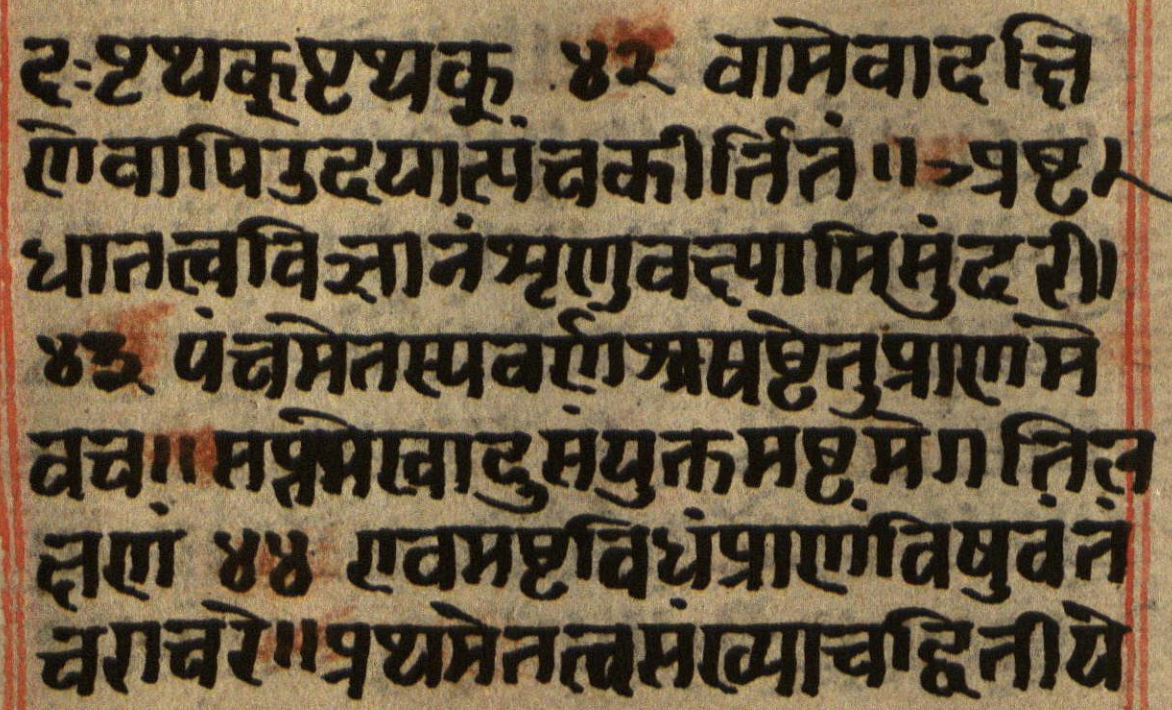 दःपृथक्पृथक् ४२ वामेवादक्षि
णेवापिउदयात्पंचकीर्तितं ॥ अष्ट
धातत्त्वविज्ञानंशृणुवक्ष्यामिसुंदरी॥
४३ पंचमेतस्यवर्णश्चषष्टेतुप्राणमे
वच॥सप्तमेस्वादुसंयुक्तमष्टमेगतिल
क्षणं ४४ एवमष्टविधंप्राणंविषुवंतं
चराचरे॥प्रथमेतत्वसंख्याचद्वितीये